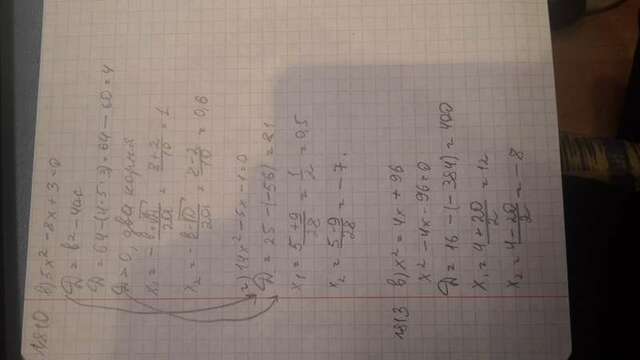 1810 в) 5x² - 8x + 3 = 0
D = b² - 4ac
D = 64 - (4·5·3) = 64 - 60 = 4
D > 0, два корня
x₁ = -b+√D/2a = 8+2/10 = 1
x₂ = -b-√D/2a = 8-2/10 = 0,6
г) 14x² - 5x - 1 = 0
D = 25 - (-56) = 81
x₁ = 5+9/28 = 1/2 = 0,5
x₂ = 5-9/28 = -7.
1813 в) x² = 4x + 96
x² - 4x - 96 = 0
D = 16 - (-384) = 400
x₁ = 4+20/2 = 12
x₂ = 4-20/2 = -8